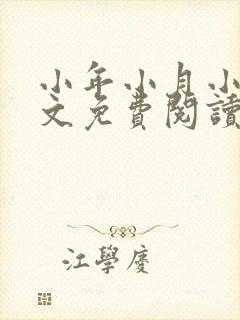 小年小月小
文免費閱讀
江學慶